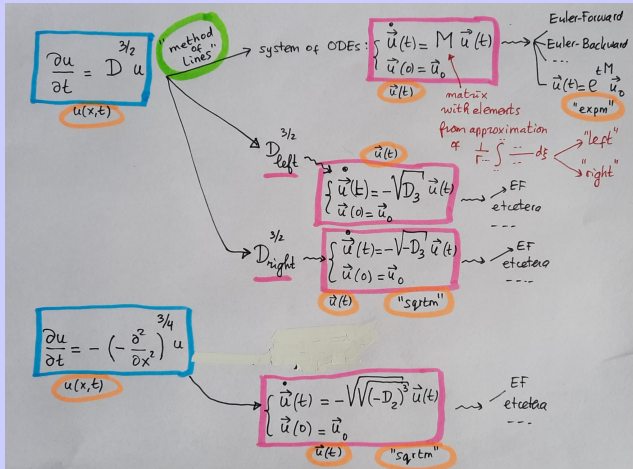 ∂u/∂t = D^{3/2} u
u(x,t)
"method of Lines"
system of ODEs: { u̇⃗(t) = M u⃗(t)
u⃗(0) = u⃗₀
u⃗(t)
Euler-Forward
Euler-Backward
---
u⃗(t) = e^{tM} u⃗₀
"expm"
matrix
with elements
from approximation
of 1/Γ... ∫ ... dξ
"left"
"right"
D^{3/2} left
u⃗(t)
{ u̇⃗(t) = -√D₃ u⃗(t)
u⃗(0) = u⃗₀
EF
etcetera
---
D^{3/2} right
{ u̇⃗(t) = -√-D₃ u⃗(t)
u⃗(0) = u⃗₀
u⃗(t)
"sqrtm"
EF
etcetera
---
∂u/∂t = -(-∂²/∂x²)^{3/4} u
u(x,t)
{ u̇⃗(t) = -√√(-D₂)³ u⃗(t)
u⃗(0) = u⃗₀
u⃗(t)
"sqrtm"
EF
etcetera
---